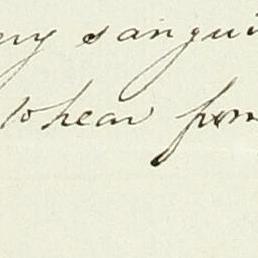 ery sangui
to hear from